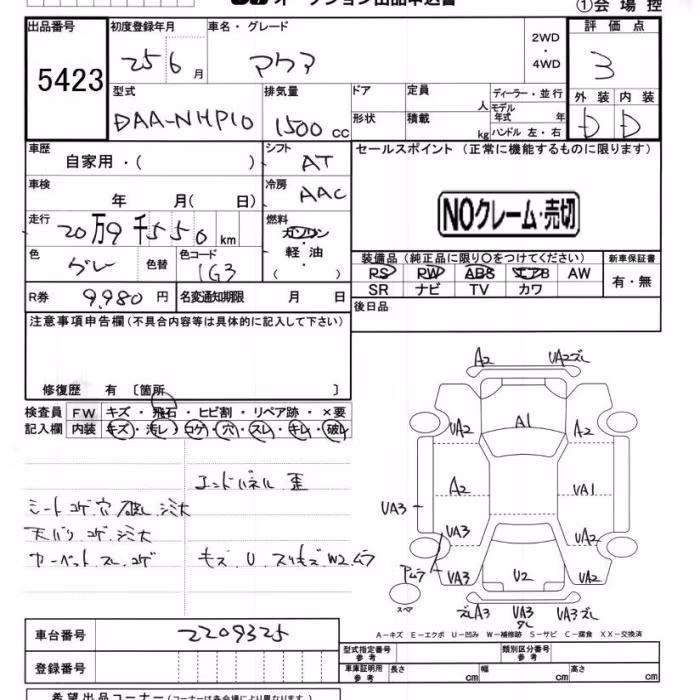 オークション出品申込書
①会場控
出品番号 初度登録年月 車名・グレード 2WD・4WD 評価点
5423 25 6月 アクア 3
型式 排気量 ドア 定員 人 ディーラー・並行 外装 内装
DAA-NHP10 1500 cc 形状 積載 kg モデル年式 年 ハンドル 左・右 D D
車歴 シフト セールスポイント (正常に機能するものに限ります)
自家用・( ) AT
車検 年 月( 日) 冷房 AAC
NOクレーム・売切
走行 20万9千550km 燃料 ガソリン・軽油・( )
色 グレー 色替 色コード 1G3
装備品 (純正品に限り○をつけてください) 新車保証書
PS PW ABS エアB AW 有・無
SR ナビ TV カワ
R券 9,980円 名変通知期限 月 日 後日品
注意事項申告欄 (不具合内容等は具体的に記入して下さい)
修復歴 有 〔箇所 〕
検査員 FW キズ・飛石・ヒビ割・リペア跡・×要
記入欄 内装 キズ・汚レ・コゲ・穴・スレ・キレ・破レ
エンドパネル 歪
シート コゲ 穴 破レ シミ大
天バリ コゲ シミ大
カーペット スレ コゲ キズ U スリキズ W2 ムラ
A2 UA2ズレ
A1
UA2 UA2
A2 UA1
UA3
UA3 UA2
Pムラ UA3 U2 UA2
スペア
ズレA3 UA3 UA3ズレ
A−キズ E−エクボ U−凹み W−補修跡 S−サビ C−腐食 XX−交換済
車台番号 2209325
型式指定番号 参考 類別区分番号 参考
登録番号 車庫証明用 参考 長さ cm 幅 cm 高さ cm
希望出品コーナー (コーナーは各会場により異なります)